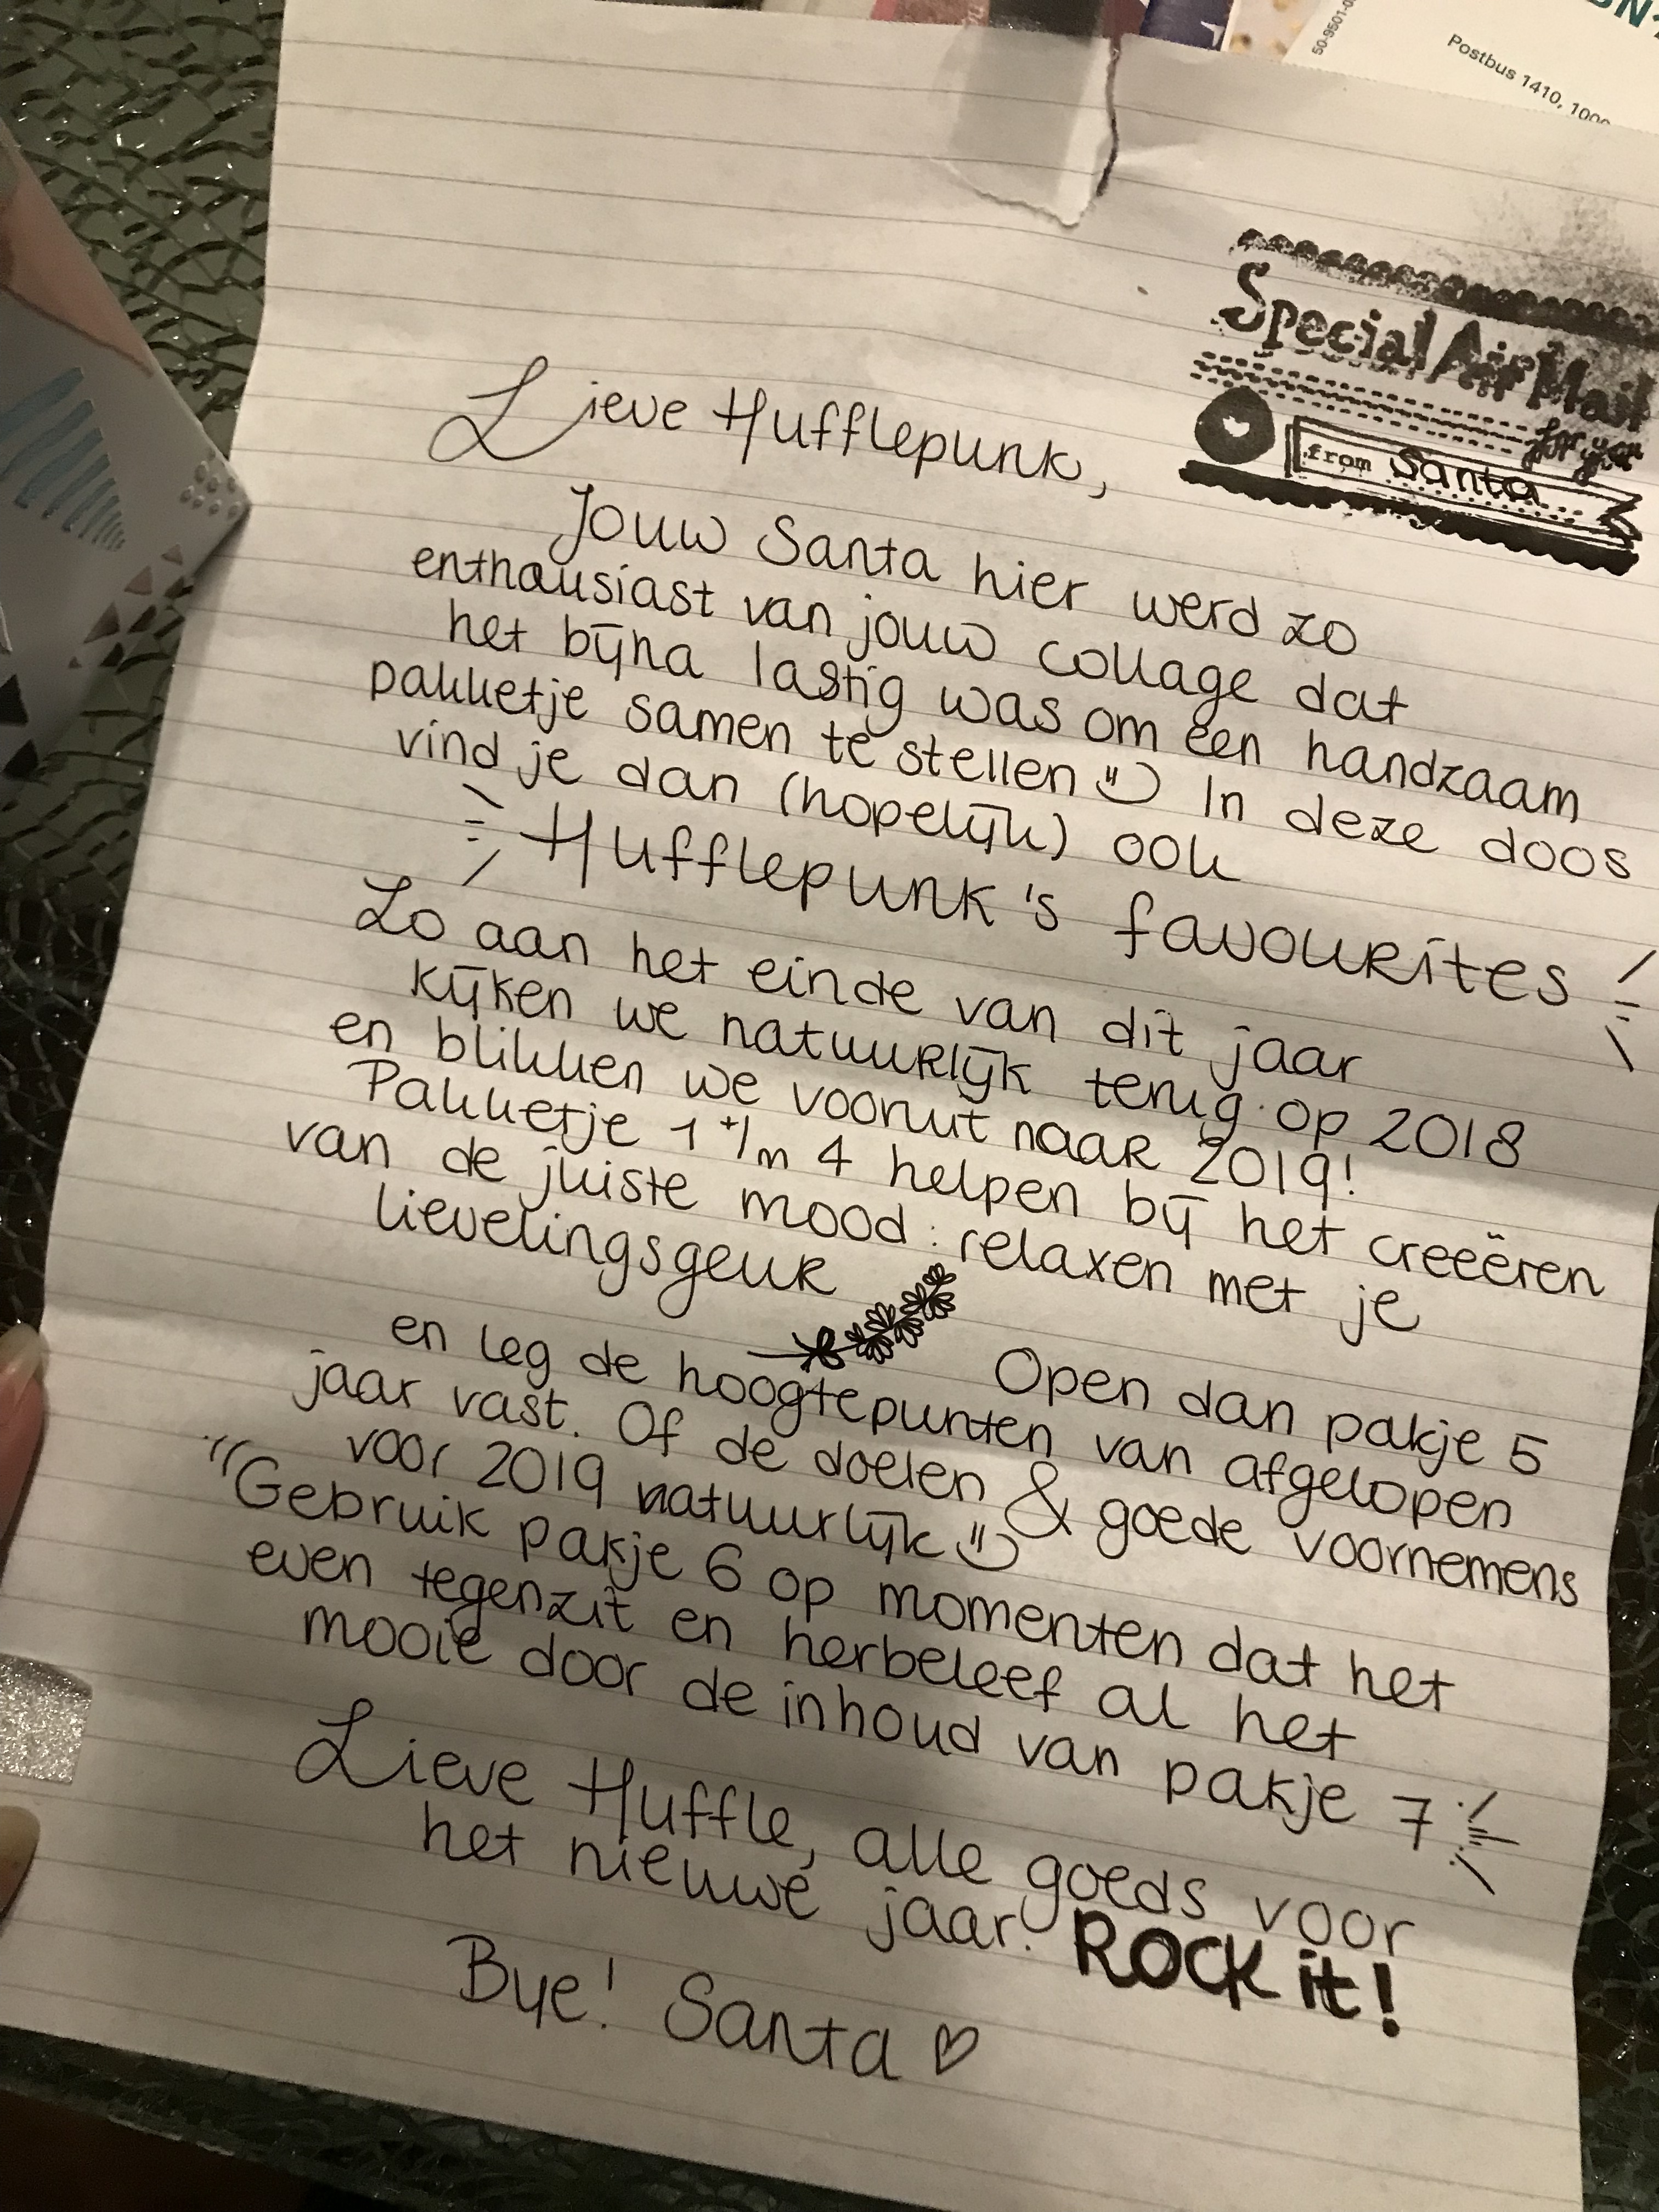 50-9501-0
Postbus 1410, 1000
Special Air Mail
for you
from Santa
Lieve Hufflepunk,
Jouw Santa hier werd zo
enthousiast van jouw collage dat
het bijna lastig was om een handzaam
pakketje samen te stellen In deze doos
vind je dan (hopelijk) ook
Hufflepunk's favourites
Zo aan het einde van dit jaar
kijken we natuurlijk terug op 2018
en blikken we vooruit naar 2019!
Pakketje 1 t/m 4 helpen bij het creeëren
van de juiste mood: relaxen met je
lievelingsgeur
Open dan pakje 5
en leg de hoogtepunten van afgelopen
jaar vast. Of de doelen & goede voornemens
voor 2019 natuurlijk
Gebruik pakje 6 op momenten dat het
even tegenzit en herbeleef al het
mooie door de inhoud van pakje 7
Lieve Huffle, alle goeds voor
het nieuwe jaar. ROCK it!
Bye! Santa ♡